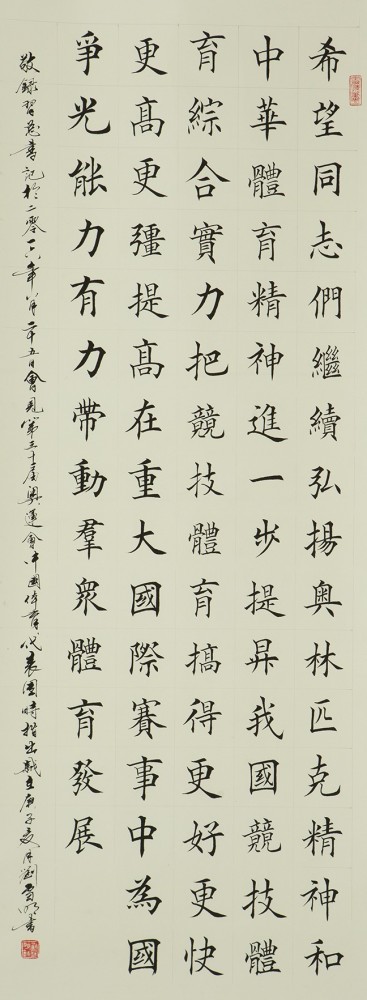 希望同志們繼續弘揚奧林匹克精神和
中華體育精神進一步提昇我國競技體
育綜合實力把競技體育搞得更好更快
更高更彊提高在重大國際賽事中為國
爭光能力有力帶動羣眾體育發展
敬錄習總書記於二零一六年八月二十五日會見第三十一屆奧運會中國体育代表團時指出戰立庚子夏月劉貴明書